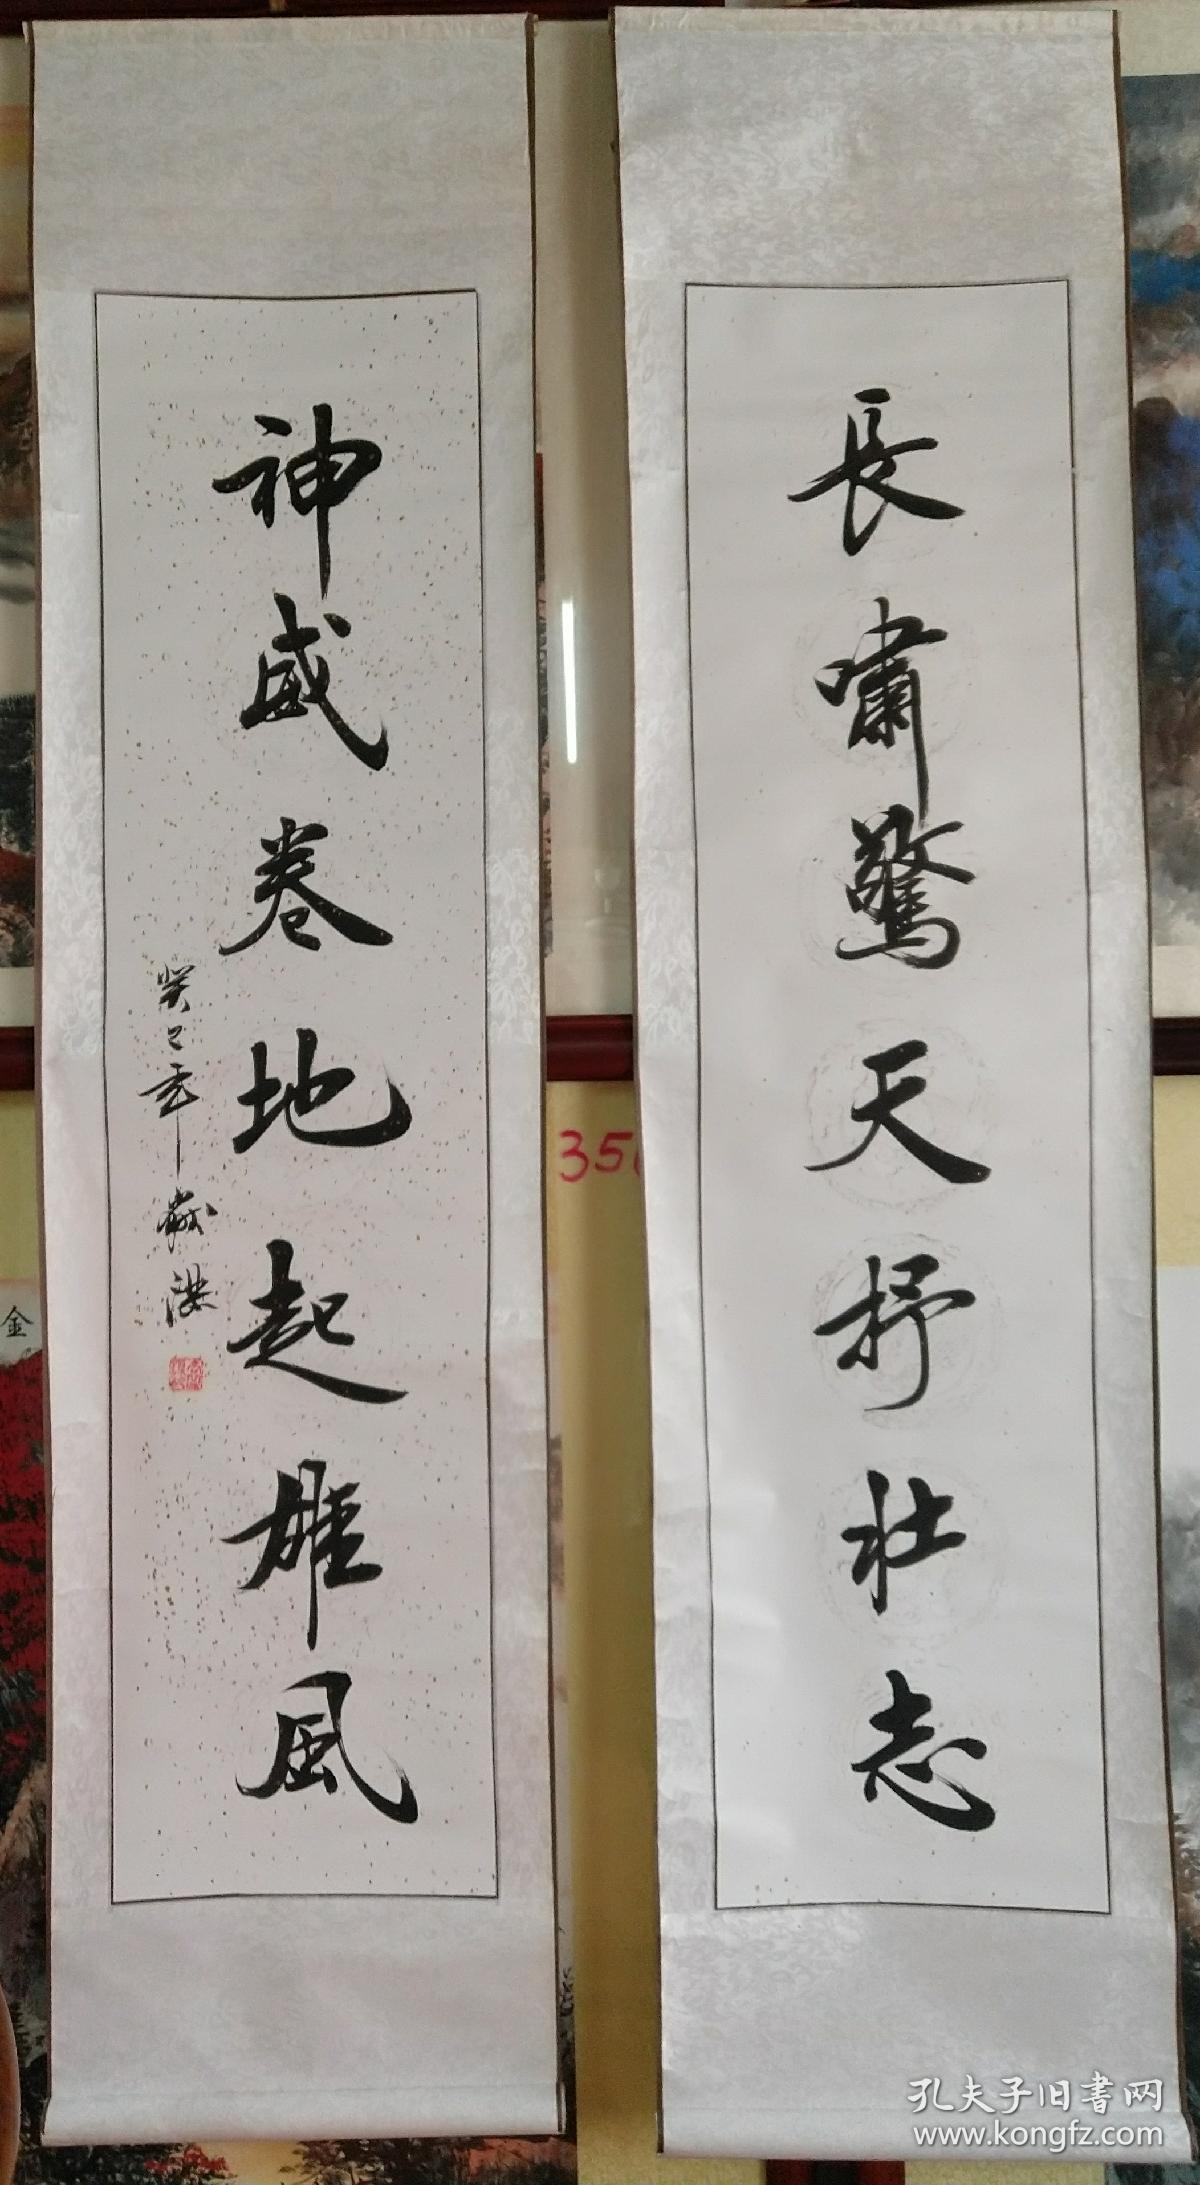 長嘯驚天抒壯志
神威卷地起雄風
癸巳年
350
金
孔夫子旧書网
www.kongfz.com